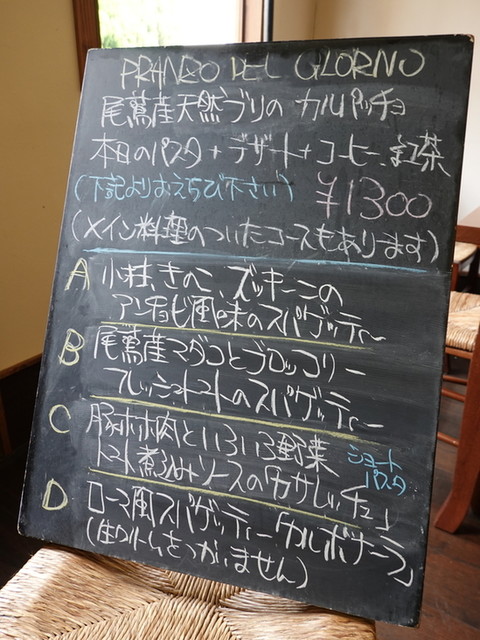 PRANZO DEL GIORNO
尾鷲産天然ブリの カルパッチョ
本日のパスタ+デザート+コーヒー、紅茶
(下記よりおえらび下さい) ¥1300
(メイン料理のついたコースもあります)
A 小柱、きのこ、ズッキーニの
アンチョビ風味のスパゲッティー
B 尾鷲産マダコとブロッコリー
フレッシュトマトのスパゲッティー
C 豚ホホ肉といろいろ野菜
トマト煮込みソースの「カサレッチェ」 ショートパスタ
D ローマ風スパゲッティー「カルボナーラ」
(生クリームをつかいません)